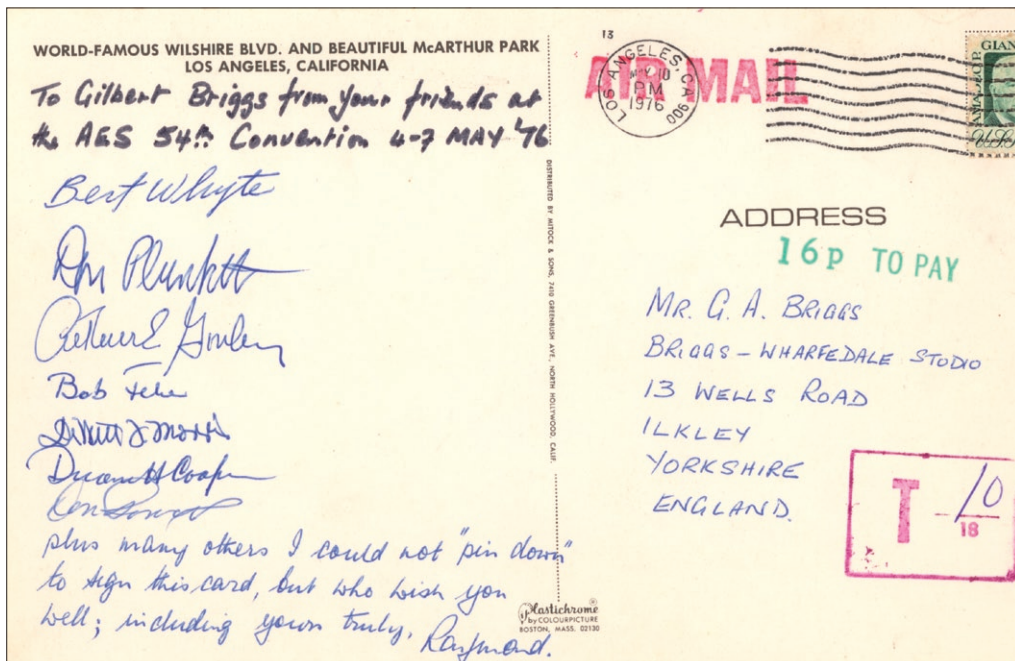 WORLD-FAMOUS WILSHIRE BLVD. AND BEAUTIFUL McARTHUR PARK
LOS ANGELES, CALIFORNIA
To Gilbert Briggs from your friends at
the AES 54th Convention 4-7 MAY '76
Bert Whyte
Don Plunkett
Arthur E Gruber
Bob
Morris
Duane H Cooper
Don
plus many others I could not "pin down"
to sign this card, but who wish you
well; including yours truly, Raymond.
DISTRIBUTED BY MITOCK & SONS, 7410 GREENBUSH AVE., NORTH HOLLYWOOD, CALIF.
Plastichrome®
by COLOURPICTURE
BOSTON, MASS. 02130
13
AIR MAIL
LOS ANGELES, CA 900
MAY 10
PM
1976
GIAN
U.S.
ADDRESS
16p TO PAY
MR. G. A. BRIGGS
BRIGGS - WHARFEDALE STUDIO
13 WELLS ROAD
ILKLEY
YORKSHIRE
ENGLAND.
T 10/18